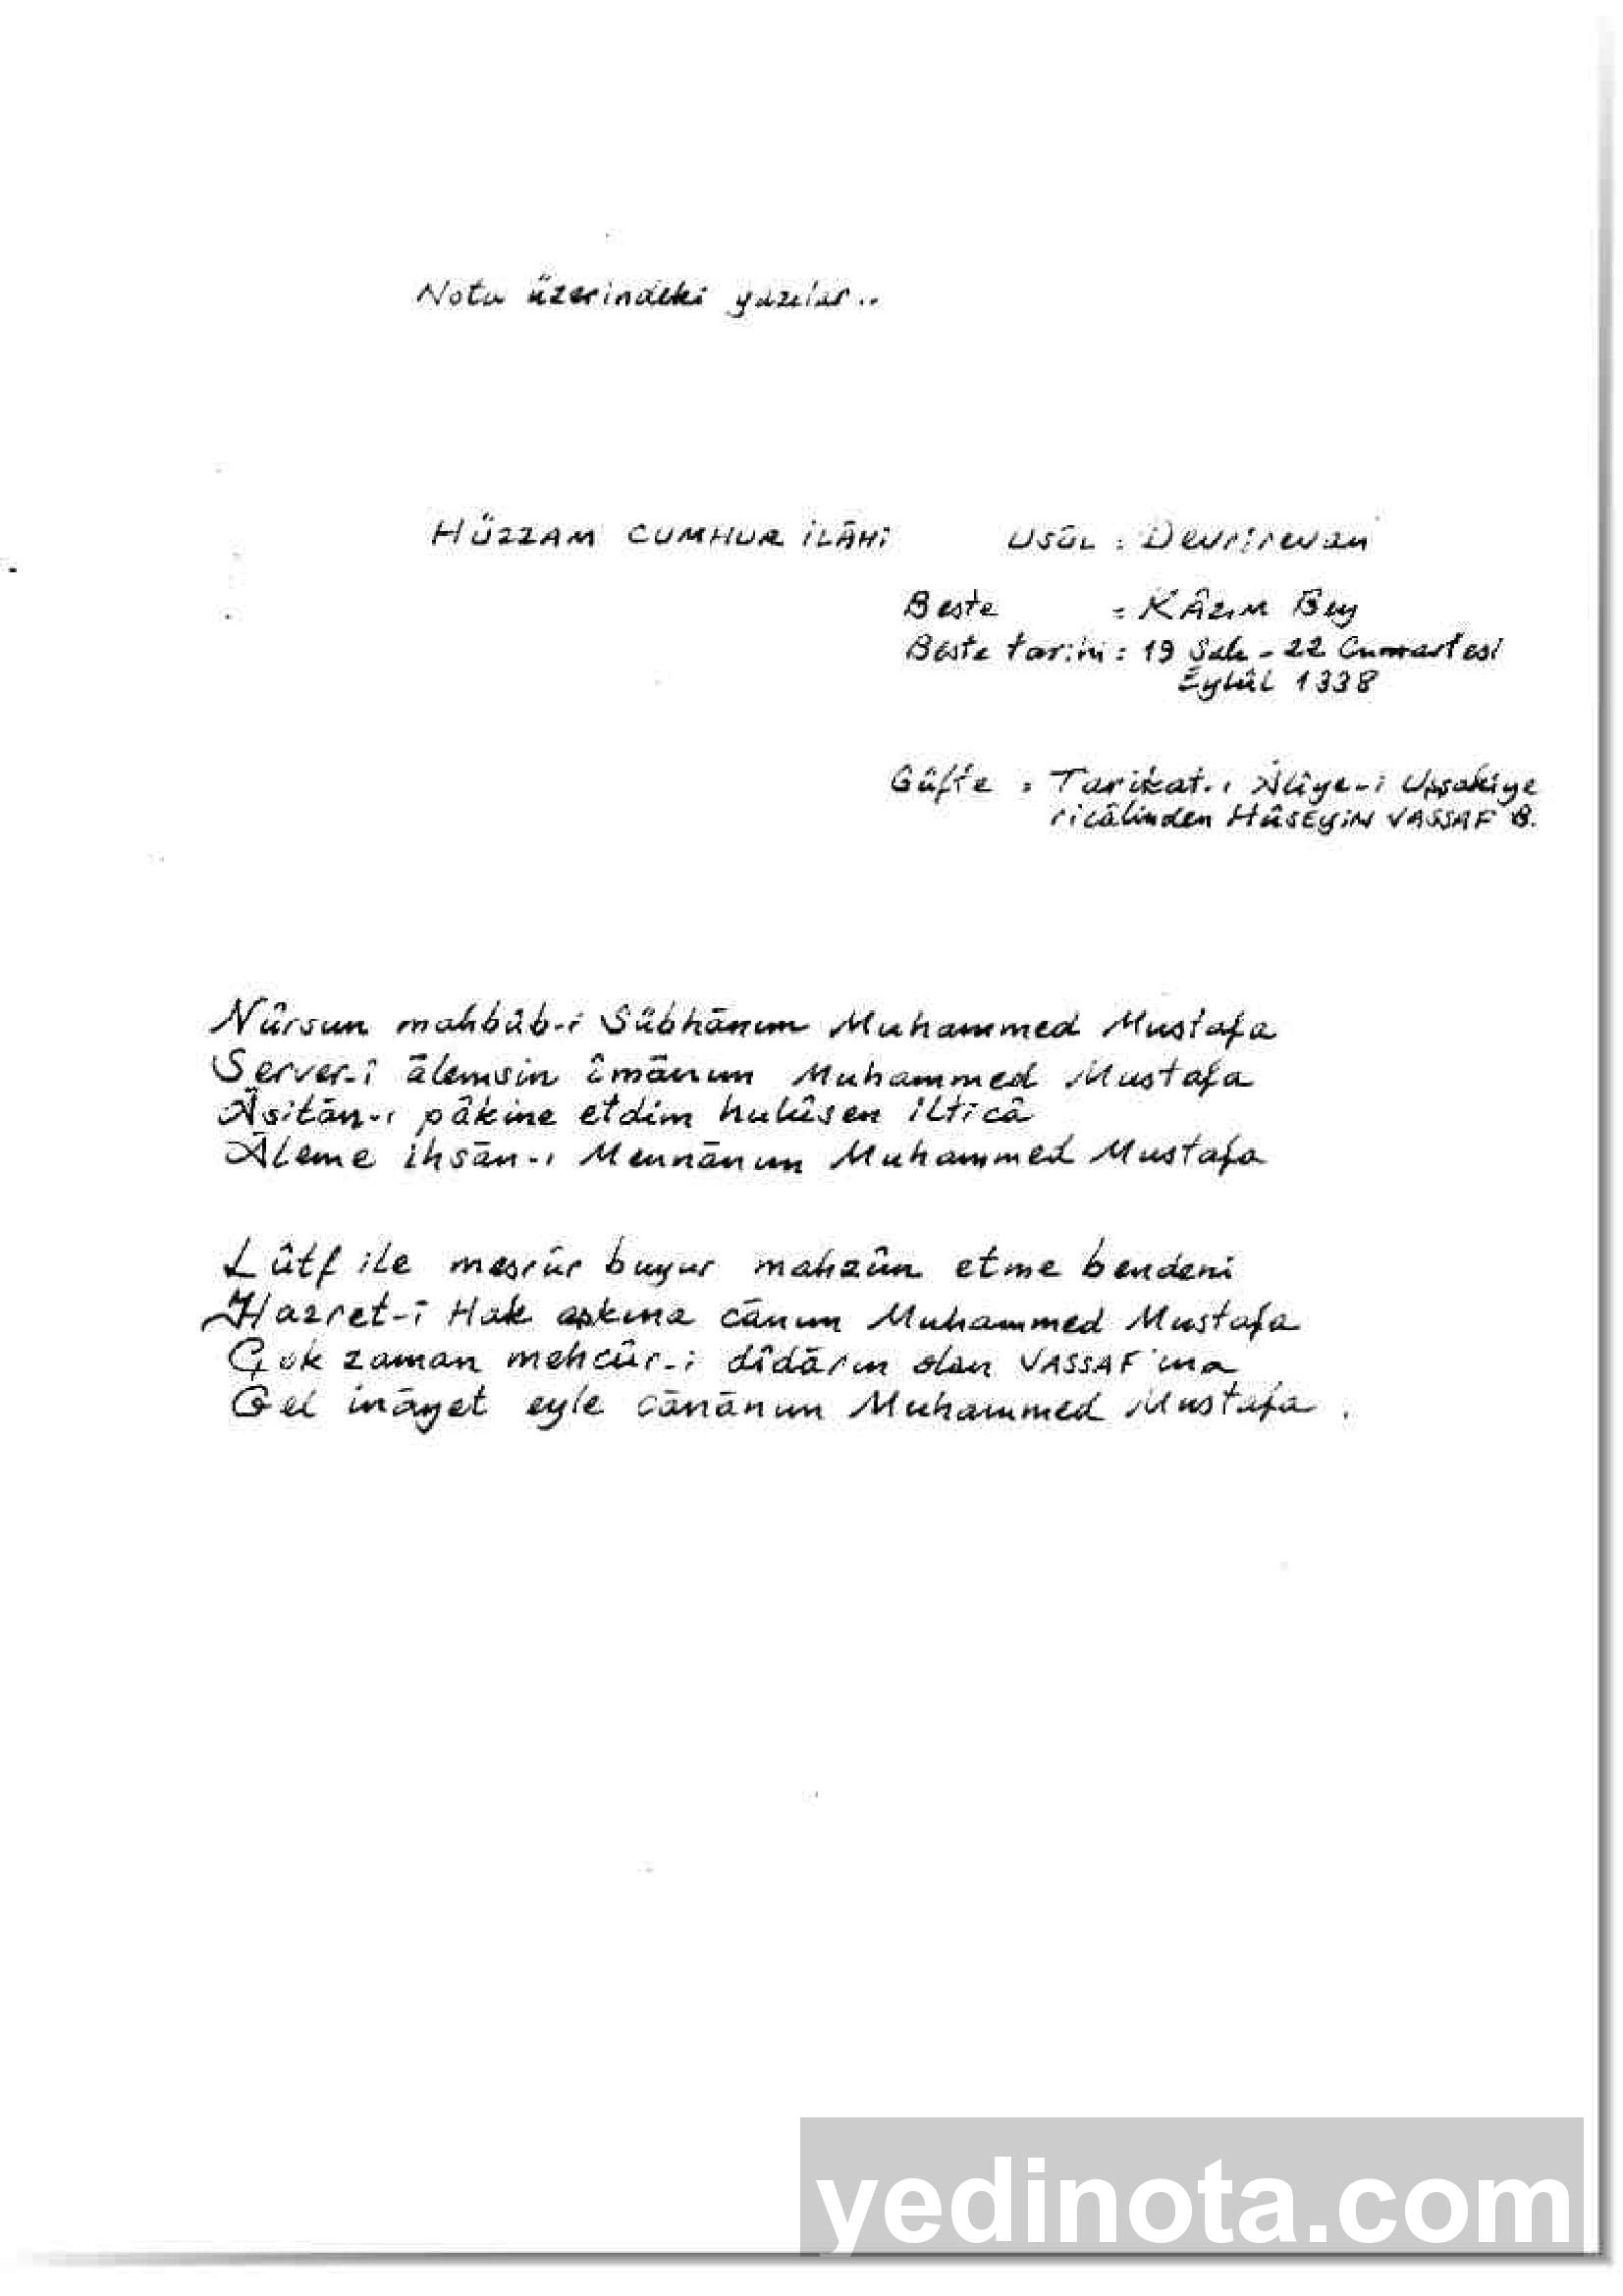 Nota üzerindeki yazılar..
HÜZZAM CUMHUR İLÂHİ USÛL : Devrirevan
Beste = KÂZIM Bey
Beste tarihi : 19 Salı - 22 Cumartesi
Eylûl 1338
Gûfte : Tarikat-ı Âliye-i Uşşakiye
ricâlinden HÜSEYİN VASSAF B.
Nûrsun mahbûb-i Sübhânım Muhammed Mustafa
Server-î âlemsin îmânım Muhammed Mustafa
Âsitân-ı pâkine etdim hulûsen ilticâ
Âleme ihsân-ı Mennânım Muhammed Mustafa
Lûtf ile mesrûr buyur mahzûn etme bendeni
Hazret-î Hak aşkına cânım Muhammed Mustafa
Çok zaman mehcûr-i dîdârın olan VASSAF'ına
Gel inâyet eyle cânânım Muhammed Mustafa .
yedinota.com